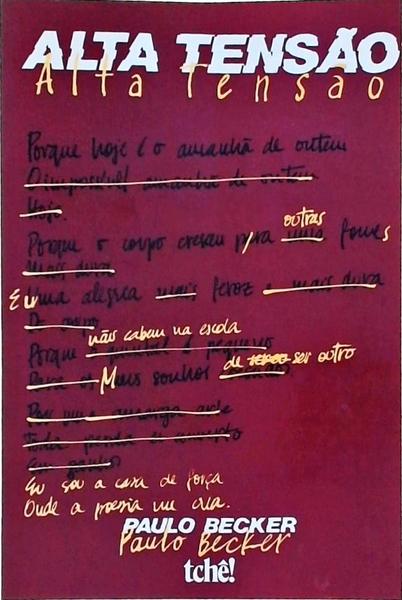 ALTA TENSÃO
Alta Tensão
Porque hoje é o amanhã de ontem
O impossível amanhã de ontem
Hoje.
outras
Porque o corpo cresceu p/ra uma fomes
Mais dura
E uma alegria mais feroz e mais dura
De corpo
não cabem na escola
Porque o quintal é pequeno
de ser outro
Para os Meus sonhos
Por uma
Toda
Eu sou a casa de força
Onde a poesia me cria.
PAULO BECKER
Paulo Becker
tchê!